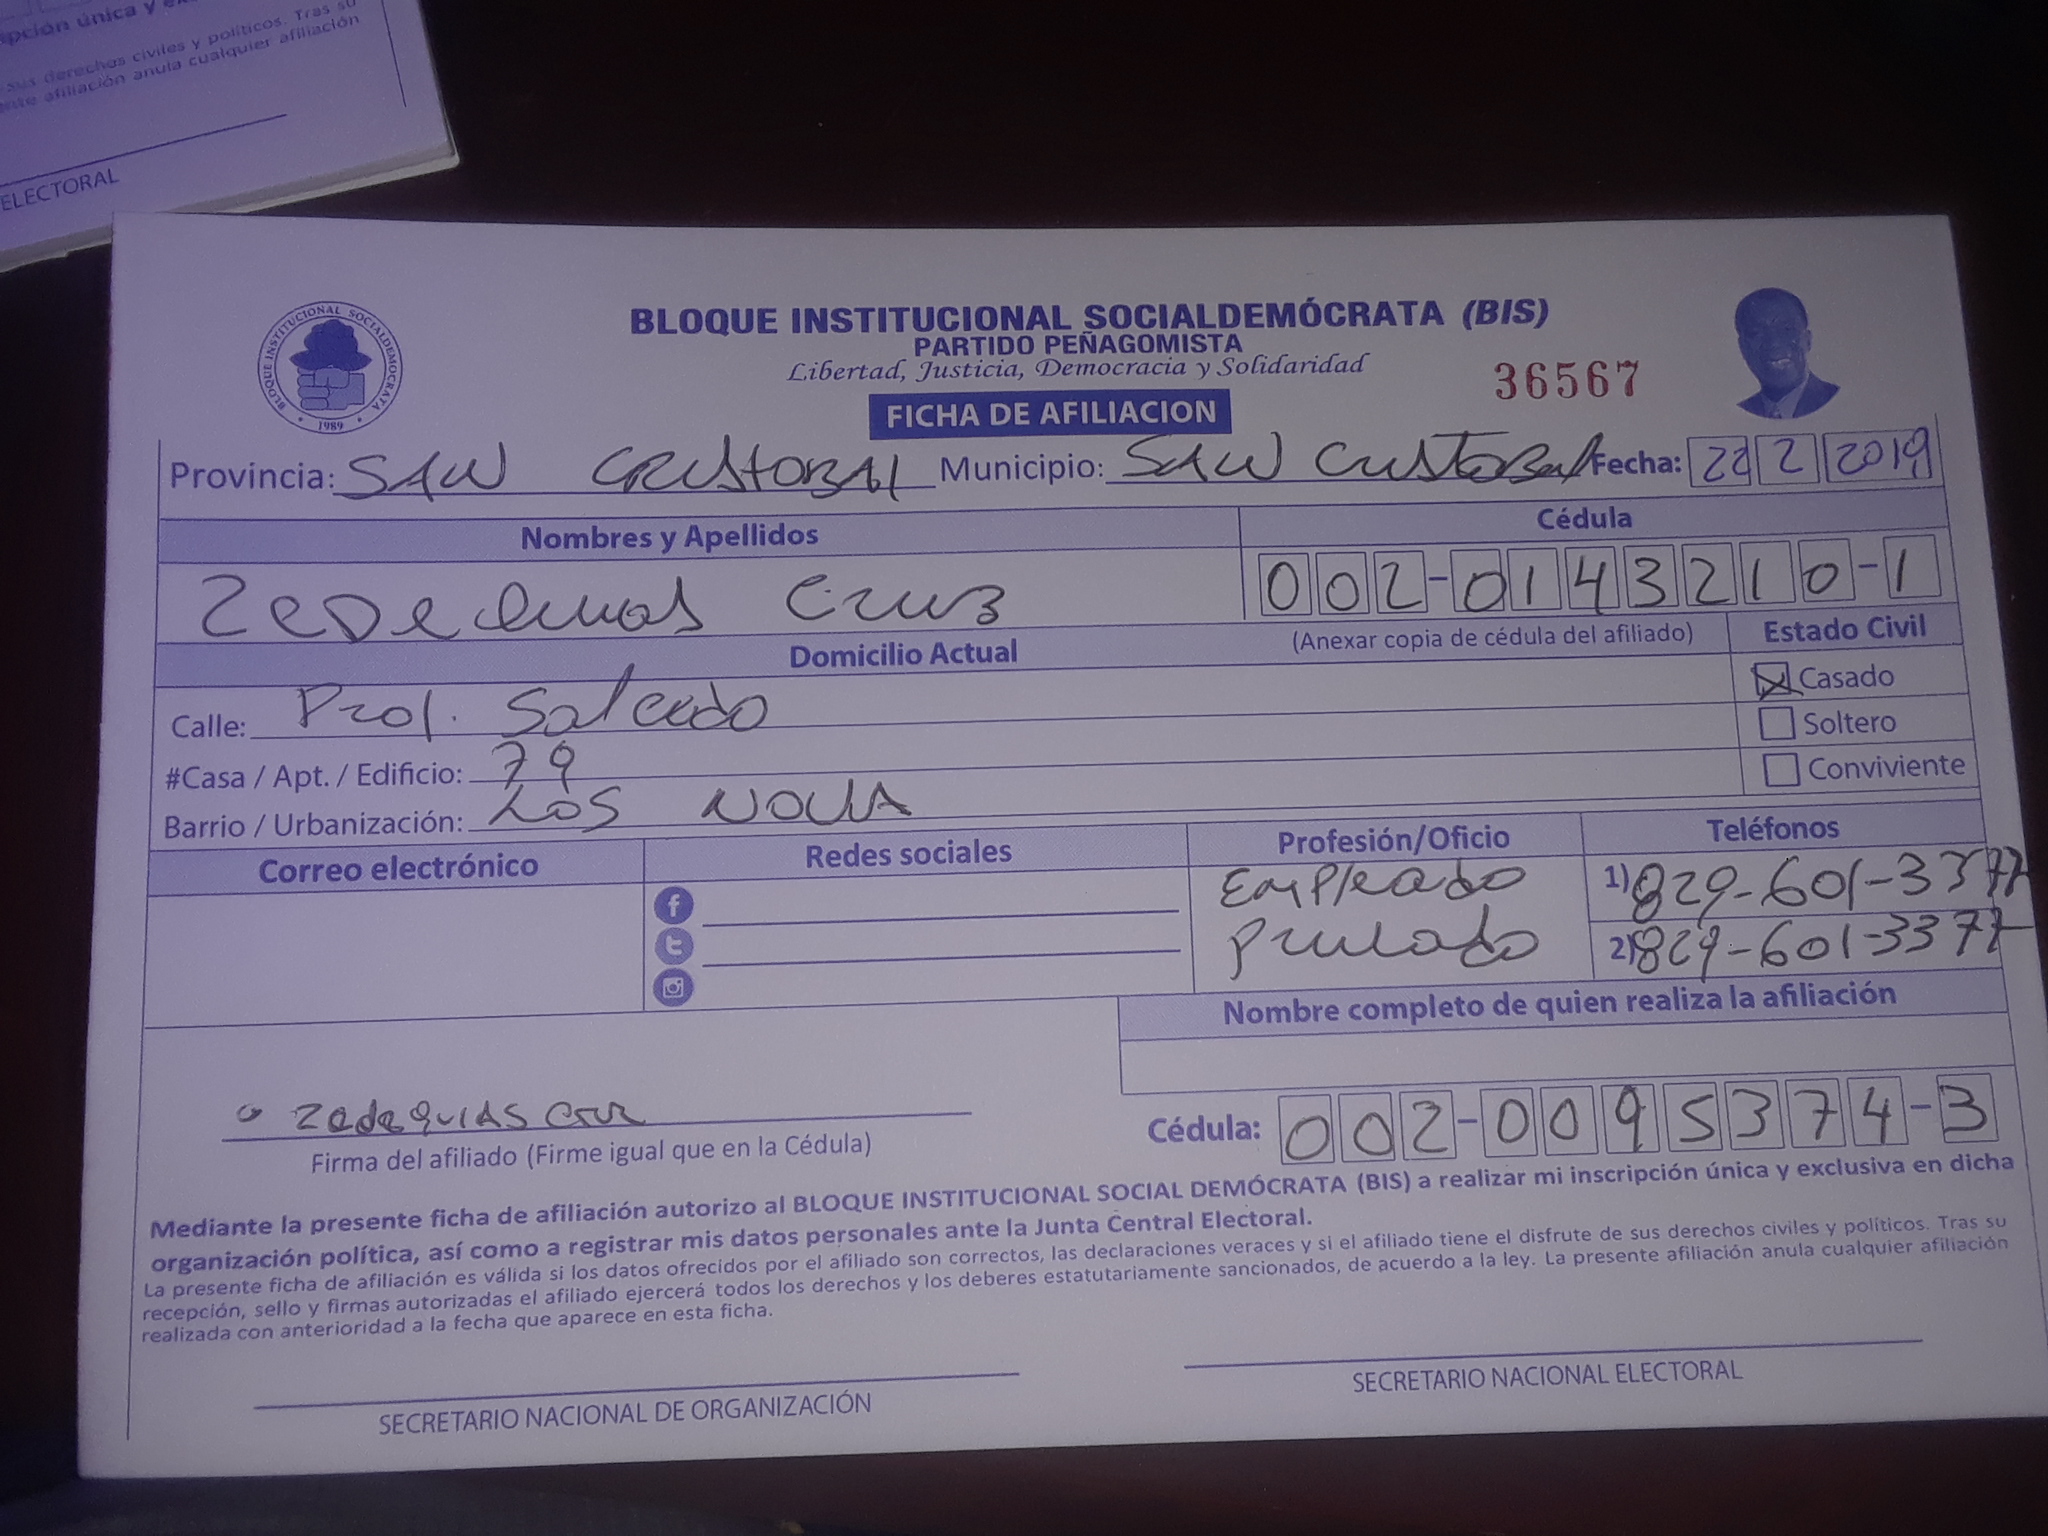 pción única y e
sus derechos civiles y políticos. Tras su
ente afiliación anula cualquier afiliación
ELECTORAL
BLOQUE INSTITUCIONAL SOCIALDEMOCRATA
1989
BLOQUE INSTITUCIONAL SOCIALDEMÓCRATA (BIS)
PARTIDO PEÑAGOMISTA
Libertad, Justicia, Democracia y Solidaridad
36567
FICHA DE AFILIACION
Provincia: SAN CRISTOBAL Municipio: SAN CRISTOBAL Fecha: 22 2 2019
Nombres y Apellidos Cédula
Cruz 002-0143210-1
Domicilio Actual (Anexar copia de cédula del afiliado) Estado Civil
Calle: Prol. Salcedo Casado
Soltero
#Casa / Apt. / Edificio: 79
Conviviente
Barrio / Urbanización: LOS NOVA
Correo electrónico Redes sociales Profesión/Oficio Teléfonos
Empleado 1) 829-601-3377
Privado 2) 829-601-3377
Nombre completo de quien realiza la afiliación
Zedequias Cruz
Cédula: 002-0095374-3
Firma del afiliado (Firme igual que en la Cédula)
Mediante la presente ficha de afiliación autorizo al BLOQUE INSTITUCIONAL SOCIAL DEMÓCRATA (BIS) a realizar mi inscripción única y exclusiva en dicha
organización política, así como a registrar mis datos personales ante la Junta Central Electoral.
La presente ficha de afiliación es válida si los datos ofrecidos por el afiliado son correctos, las declaraciones veraces y si el afiliado tiene el disfrute de sus derechos civiles y políticos. Tras su
recepción, sello y firmas autorizadas el afiliado ejercerá todos los derechos y los deberes estatutariamente sancionados, de acuerdo a la ley. La presente afiliación anula cualquier afiliación
realizada con anterioridad a la fecha que aparece en esta ficha.
SECRETARIO NACIONAL DE ORGANIZACIÓN
SECRETARIO NACIONAL ELECTORAL